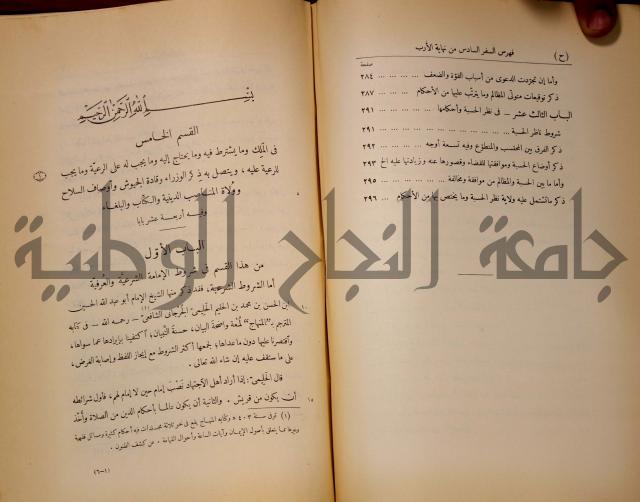 (ح) فهرس السفر السادس من نهاية الأرب
صفحة
وأما إن تجرّدت الدعوى من أسباب القوّة والضعف ... ... ... ... ٢٨٤
ذكر توقيعات متولّى المظالم وما يترتّب عليها من الأحكام ... ... ... ٢٨٧
الباب الثالث عشر – فى نظر الحسبة وأحكامها ... ... ... ... ٢٩١
شروط ناظر الحسبة ... ... ... ... ... ... ... ٢٩١
ذكر الفرق بين المحتسب والمتطوّع وفيه تسعة أوجه ... ... ... ... ٢٩٢
ذكر أوضاع الحسبة وموافقتها للقضاء وقصورها عنه وزيادتها عليه الخ ٢٩٣
وأما ما بين الحسبة والمظالم من موافقة ومخالفة ... ... ... ... ٢٩٥
ذكر ماتشتمل عليه ولاية نظر الحسبة وما يختص بها من الأحكام ... ... ٢٩٦
بِسْمِ اللهِ الرَّحْمَنِ الرَّحِيمِ
القسم الخامس
فى المَلِك وما يشترط فيه وما يحتاج إليه وما يجب له على الرعيّة وما يجب
للرعية عليه ، ويتصل به ذكر الوزراء وقادة الجيوش وأوصاف السلاح
وولاة المناصب الدينية والكتّاب والبلغاء
وفيه أربعة عشر بابا
٥
الباب الأوّل
من هذا القسم فى شروط الإمامة الشرعيّة والعرفية
أما الشروط الشرعية، فقد ذكر منها الشيخ الإمام أبو عبد الله الحسين
ابن الحسن بن محمد بن الحليم الحَلِيمىّ الجُرجانى الشافعىّ(١) – رحمه الله – فى كتابه ١٠
المترجم بـ"المنهاج" لُمعة واضحة البيان، حسنة التبيان، اكتفينا بإيرادها عما سواها،
واقتصرنا عليها دون ماعداها، لجمعها أكثر الشروط مع إيجاز اللفظ وإصابة الغرض،
على ما ستقف عليه إن شاء الله تعالى .
قال الحَلِيمىّ: إذا أراد أهل الاجتهاد نَصْبَ إمام حين لا إمام لهم، فأول شرائطه
أن يكون من قريش . والثانية أن يكون عالما بأحكام الدين من الصلاة وأخذ ١٥
(١) توفى سنة ٤٠٣ هـ وكتابه المنهاج يقع فى نحو ثلاثة مجلدات فيه أحكام كثيرة ومسائل فقهية
وغيرها مما يتعلق بأصول الإيمان وآيات الساعة وأحوال القيامة . عن كشف الظنون .
(٦-١)
جامعة النجاح الوطنية